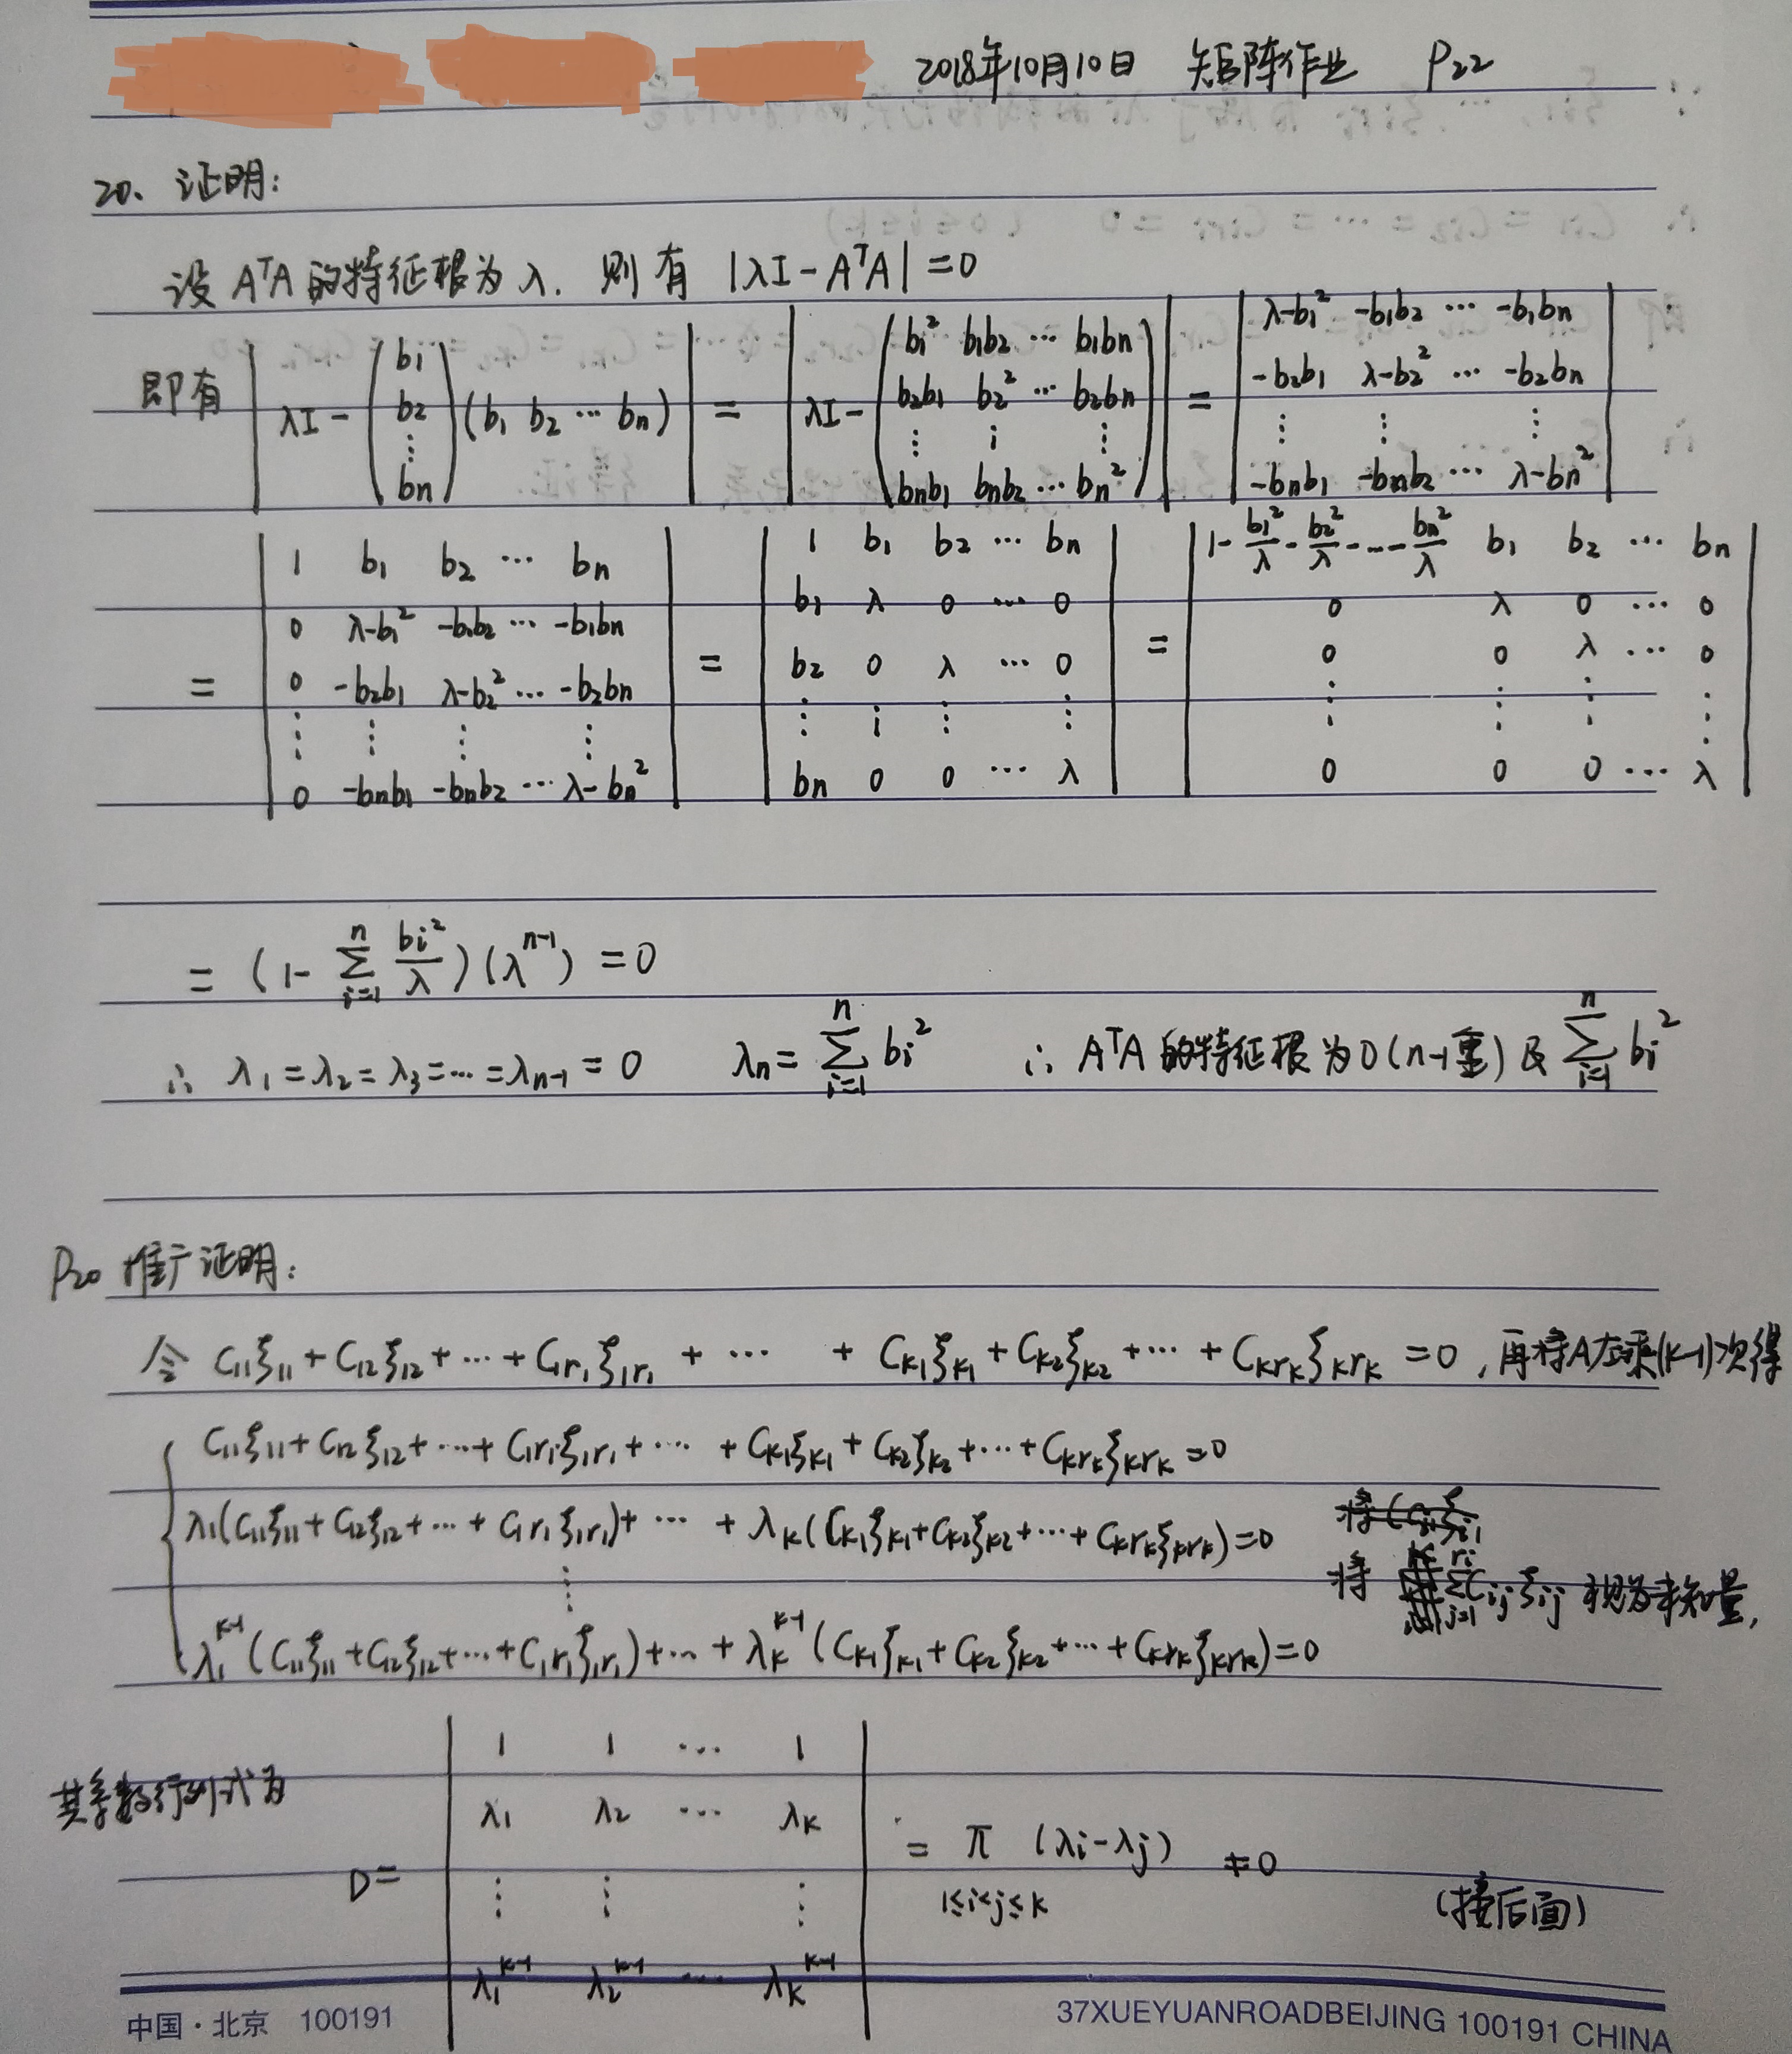 2018年10月10日 矩阵作业 P22
20. 证明:
设 AᵀA 的特征根为 λ. 则有 |λI - AᵀA| = 0
即有 | λI - (b1 b2 ⋮ bn) (b1 b2 ⋯ bn) | = | λI - (b1² b1b2 ⋯ b1bn; b2b1 b2² ⋯ b2bn; ⋮ ⋮ ⋮; bnb1 bnb2 ⋯ bn²) | = | λ-b1² -b1b2 ⋯ -b1bn; -b2b1 λ-b2² ⋯ -b2bn; ⋮ ⋮ ⋮; -bnb1 -bnb2 ⋯ λ-bn² |
= | 1 b1 b2 ⋯ bn; 0 λ-b1² -b1b2 ⋯ -b1bn; 0 -b2b1 λ-b2² ⋯ -b2bn; ⋮ ⋮ ⋮ ⋮; 0 -bnb1 -bnb2 ⋯ λ-bn² | = | 1 b1 b2 ⋯ bn; b1 λ 0 ⋯ 0; b2 0 λ ⋯ 0; ⋮ ⋮ ⋮ ⋮; bn 0 0 ⋯ λ | = | 1-b1²/λ-b2²/λ-⋯-bn²/λ b1 b2 ⋯ bn; 0 λ 0 ⋯ 0; 0 0 λ ⋯ 0; ⋮ ⋮ ⋮ ⋮; 0 0 0 ⋯ λ |
= (1- Σ_{i=1}^{n} bi²/λ)(λ^{n-1}) = 0
∴ λ1=λ2=λ3=⋯=λn-1=0 λn= Σ_{i=1}^{n} bi² ∴ AᵀA 的特征根为0(n-1重)及 Σ_{i=1}^{n} bi²
P20 推广证明:
令 C11ξ11+C12ξ12+⋯+C1r1ξ1r1+⋯+Ck1ξk1+Ck2ξk2+⋯+Ckrkξkrk=0,再将A左乘(k-1)次得
C11ξ11+C12ξ12+⋯+C1r1ξ1r1+⋯+Ck1ξk1+Ck2ξk2+⋯+Ckrkξkrk=0
λ1(C11ξ11+C12ξ12+⋯+C1r1ξ1r1)+⋯+λk(Ck1ξk1+Ck2ξk2+⋯+Ckrkξkrk)=0
⋮
将 Σ_{j=1}^{ri} Cijξij 视为未知量,
λ1^{k-1}(C11ξ11+C12ξ12+⋯+C1r1ξ1r1)+⋯+λk^{k-1}(Ck1ξk1+Ck2ξk2+⋯+Ckrkξkrk)=0
其系数行列式为
D= | 1 1 ⋯ 1; λ1 λ2 ⋯ λk; ⋮ ⋮ ⋮; λ1^{k-1} λ2^{k-1} ⋯ λk^{k-1} | = π_{1≤i<j≤k} (λi-λj) ≠0
(接后面)
中国·北京 100191
37XUEYUANROADBEIJING 100191 CHINA